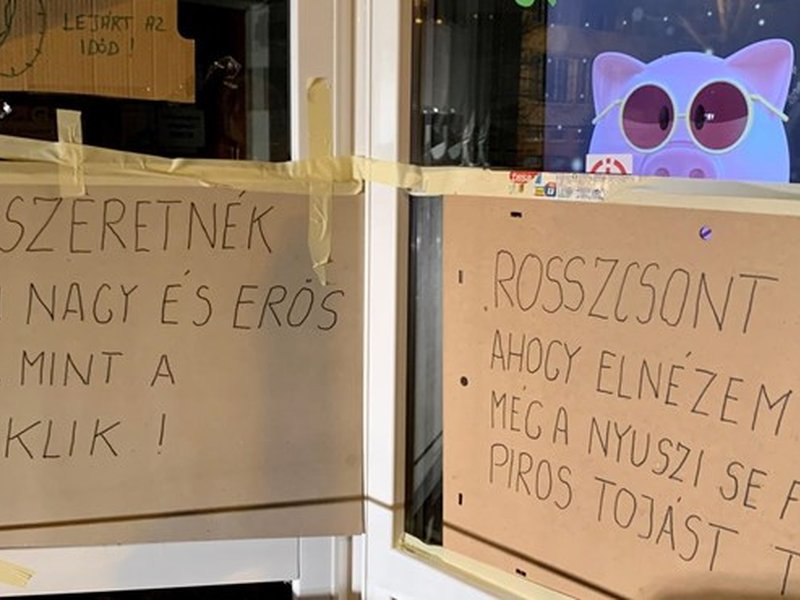 LEJÁRT AZ
IDŐD!
SZERETNÉK
NAGY ÉS ERŐS
MINT A
KLIK!
ROSSZCSONT
AHOGY ELNÉZEM
MÉG A NYUSZI SE
PIROS TOJÁST